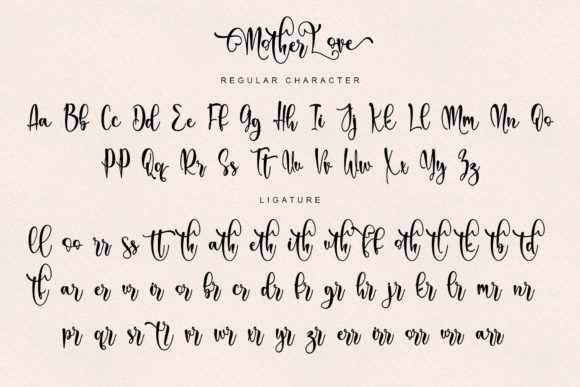 MotherLove
REGULAR CHARACTER
Aa Bb Cc Dd Ee Ff Gg Hh Ii Jj Kk Ll Mm Nn Oo
PP Qq Rr Ss Tt Uu Vv Ww Xx Yy Zz
LIGATURE
ll oo rr ss tt th ath eth ith uth ff oth tl tk tb td
tf ar er ur ir or br cr dr fr gr hr jr kr lr mr nr
pr qr sr tr vr wr xr yr zr err irr orr urr arr